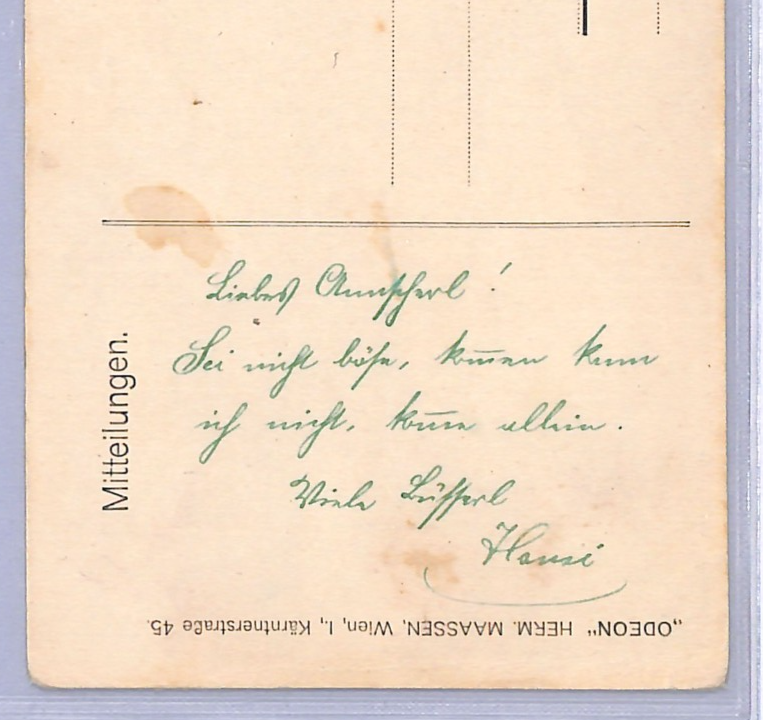 Mitteilungen.
Liebes Annscherl!
Sei nicht böse, kom̅en kann
ich nicht, kom̅e allein.
Viele Busserl
Hansi
„ODEON“ HERM. MAASSEN, Wien, I., Kärntnerstraße 45.